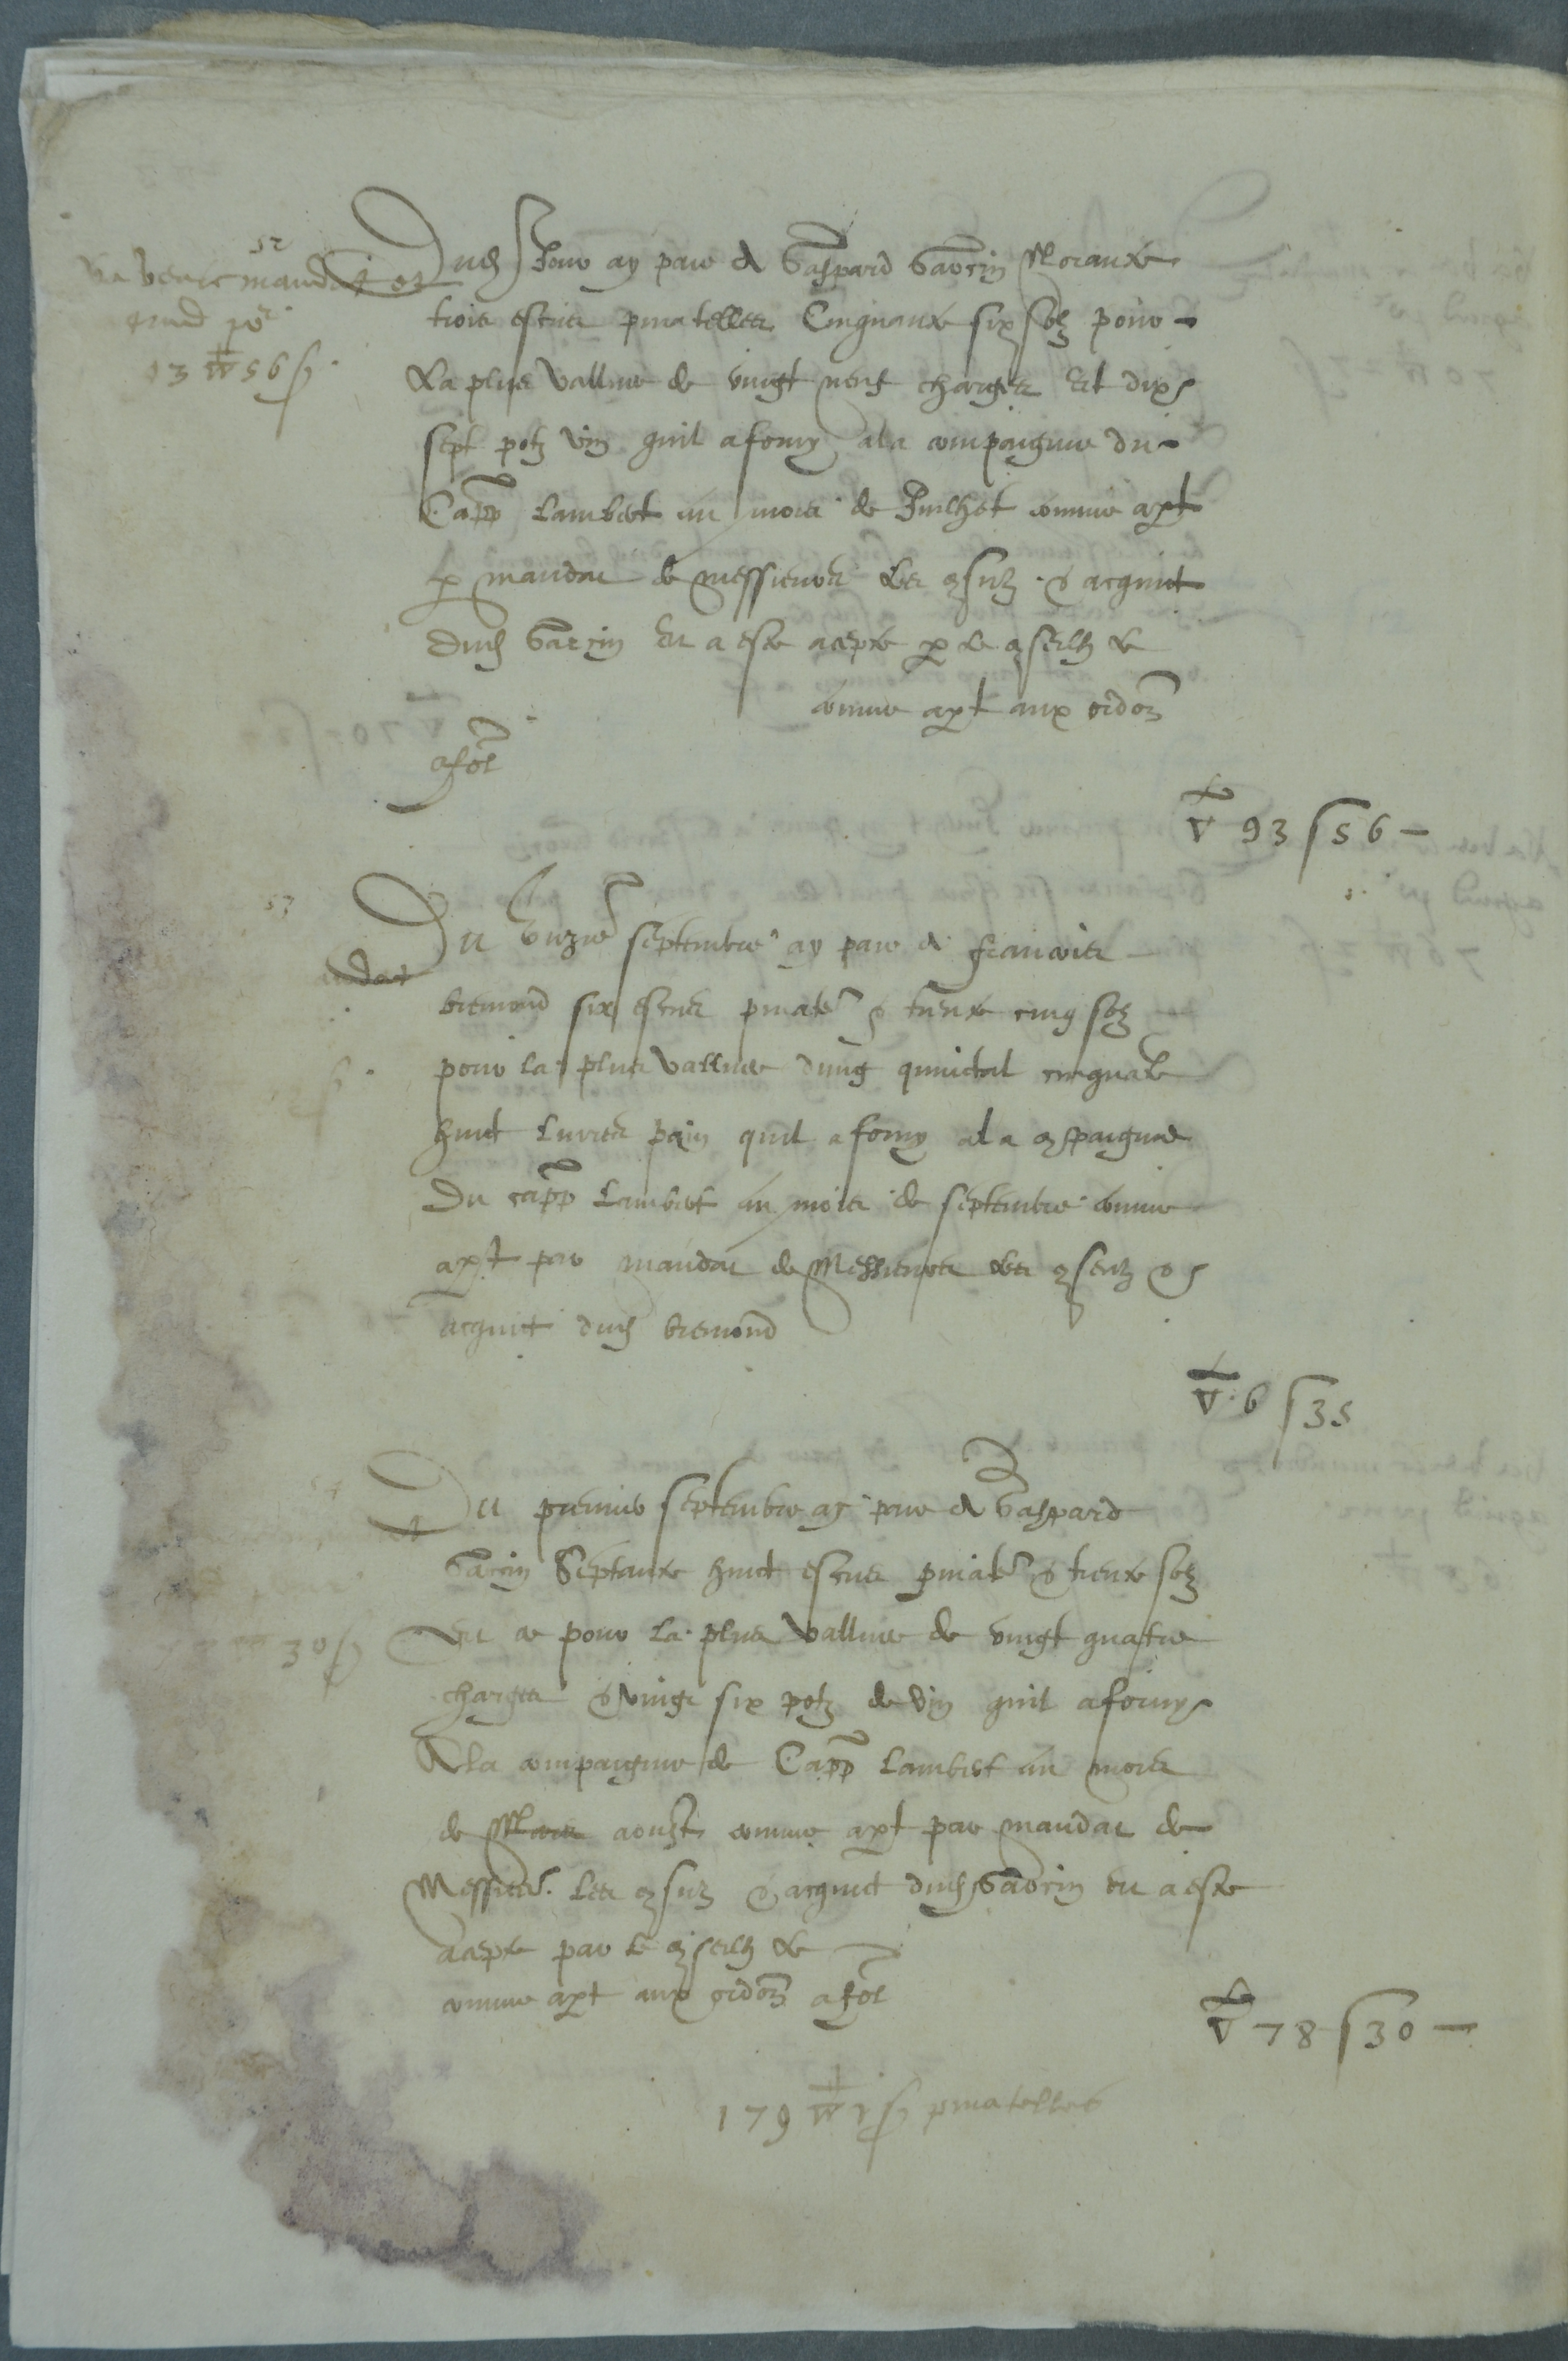 52
Va veoir mandat et
quict por
93 V 56 s.
Dud Jour ay paie A Gaspard Gavorin Noranxte
trois escus pinatelles Cinquante six solz pour
La plus Vallue de vingt neuf charges Et dix
sept potz vin quil a forny a la compaignie du
Capp Lambert au mois de Juilhet comme apt
p mandat de messieurs Les consulz & acquict
dud Gavorin Et a este acepte p le conseilh &
comme apt aux ordon
a fol
V 93 s 56 —
53
dat
Du unzie septembre ay paie a francois
bremond six escus pinatel & trente cinq solz
pour la plus vallue dung quintal cinquante
huict Livres pain quil a forny a la conpaignie
Du capp Lambert au mois de septembre comme
apt par mandat de Messieurs Les conseulz &
acquict dud bremond
V 6 s 35
54
30 s
Du premier septembre ay paie A Gaspard
Gavorin Septante huict escus pinatel & trente solz
Et ce pour La plus vallue de vingt quatre
charges & vingt six potz de vin quil a forny
A la compaignie de Capp Lambert au mois
de Mars aoust comme apt par mandat de
Messieurs Les consulz & acquict dud Gavorin Et a este
acepte par le conseilh &
comme apt aux ordon a fol
V 78 s 30 —
179 V 1 s pinatelles